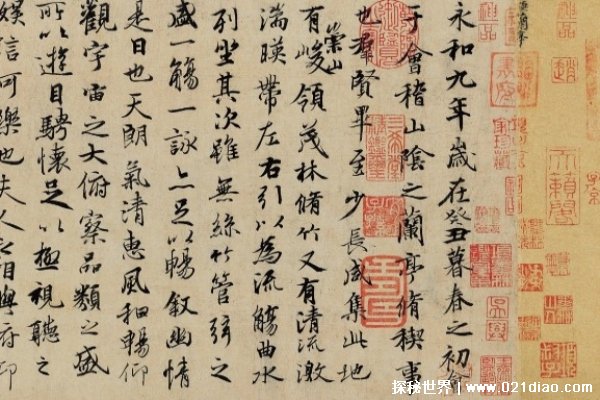 永和九年歲在癸丑暮春之初會
于會稽山陰之蘭亭脩禊事
也羣賢畢至少長咸集此地
有崇山峻領茂林脩竹又有清流激
湍暎帶左右引以為流觴曲水
列坐其次雖無絲竹管弦之
盛一觴一詠亦足以暢敘幽情
是日也天朗氣清惠風和暢仰
觀宇宙之大俯察品類之盛
所以遊目騁懷足以極視聽之
娛信可樂也夫人之相與俯仰
探秘世界 | www.021diao.com